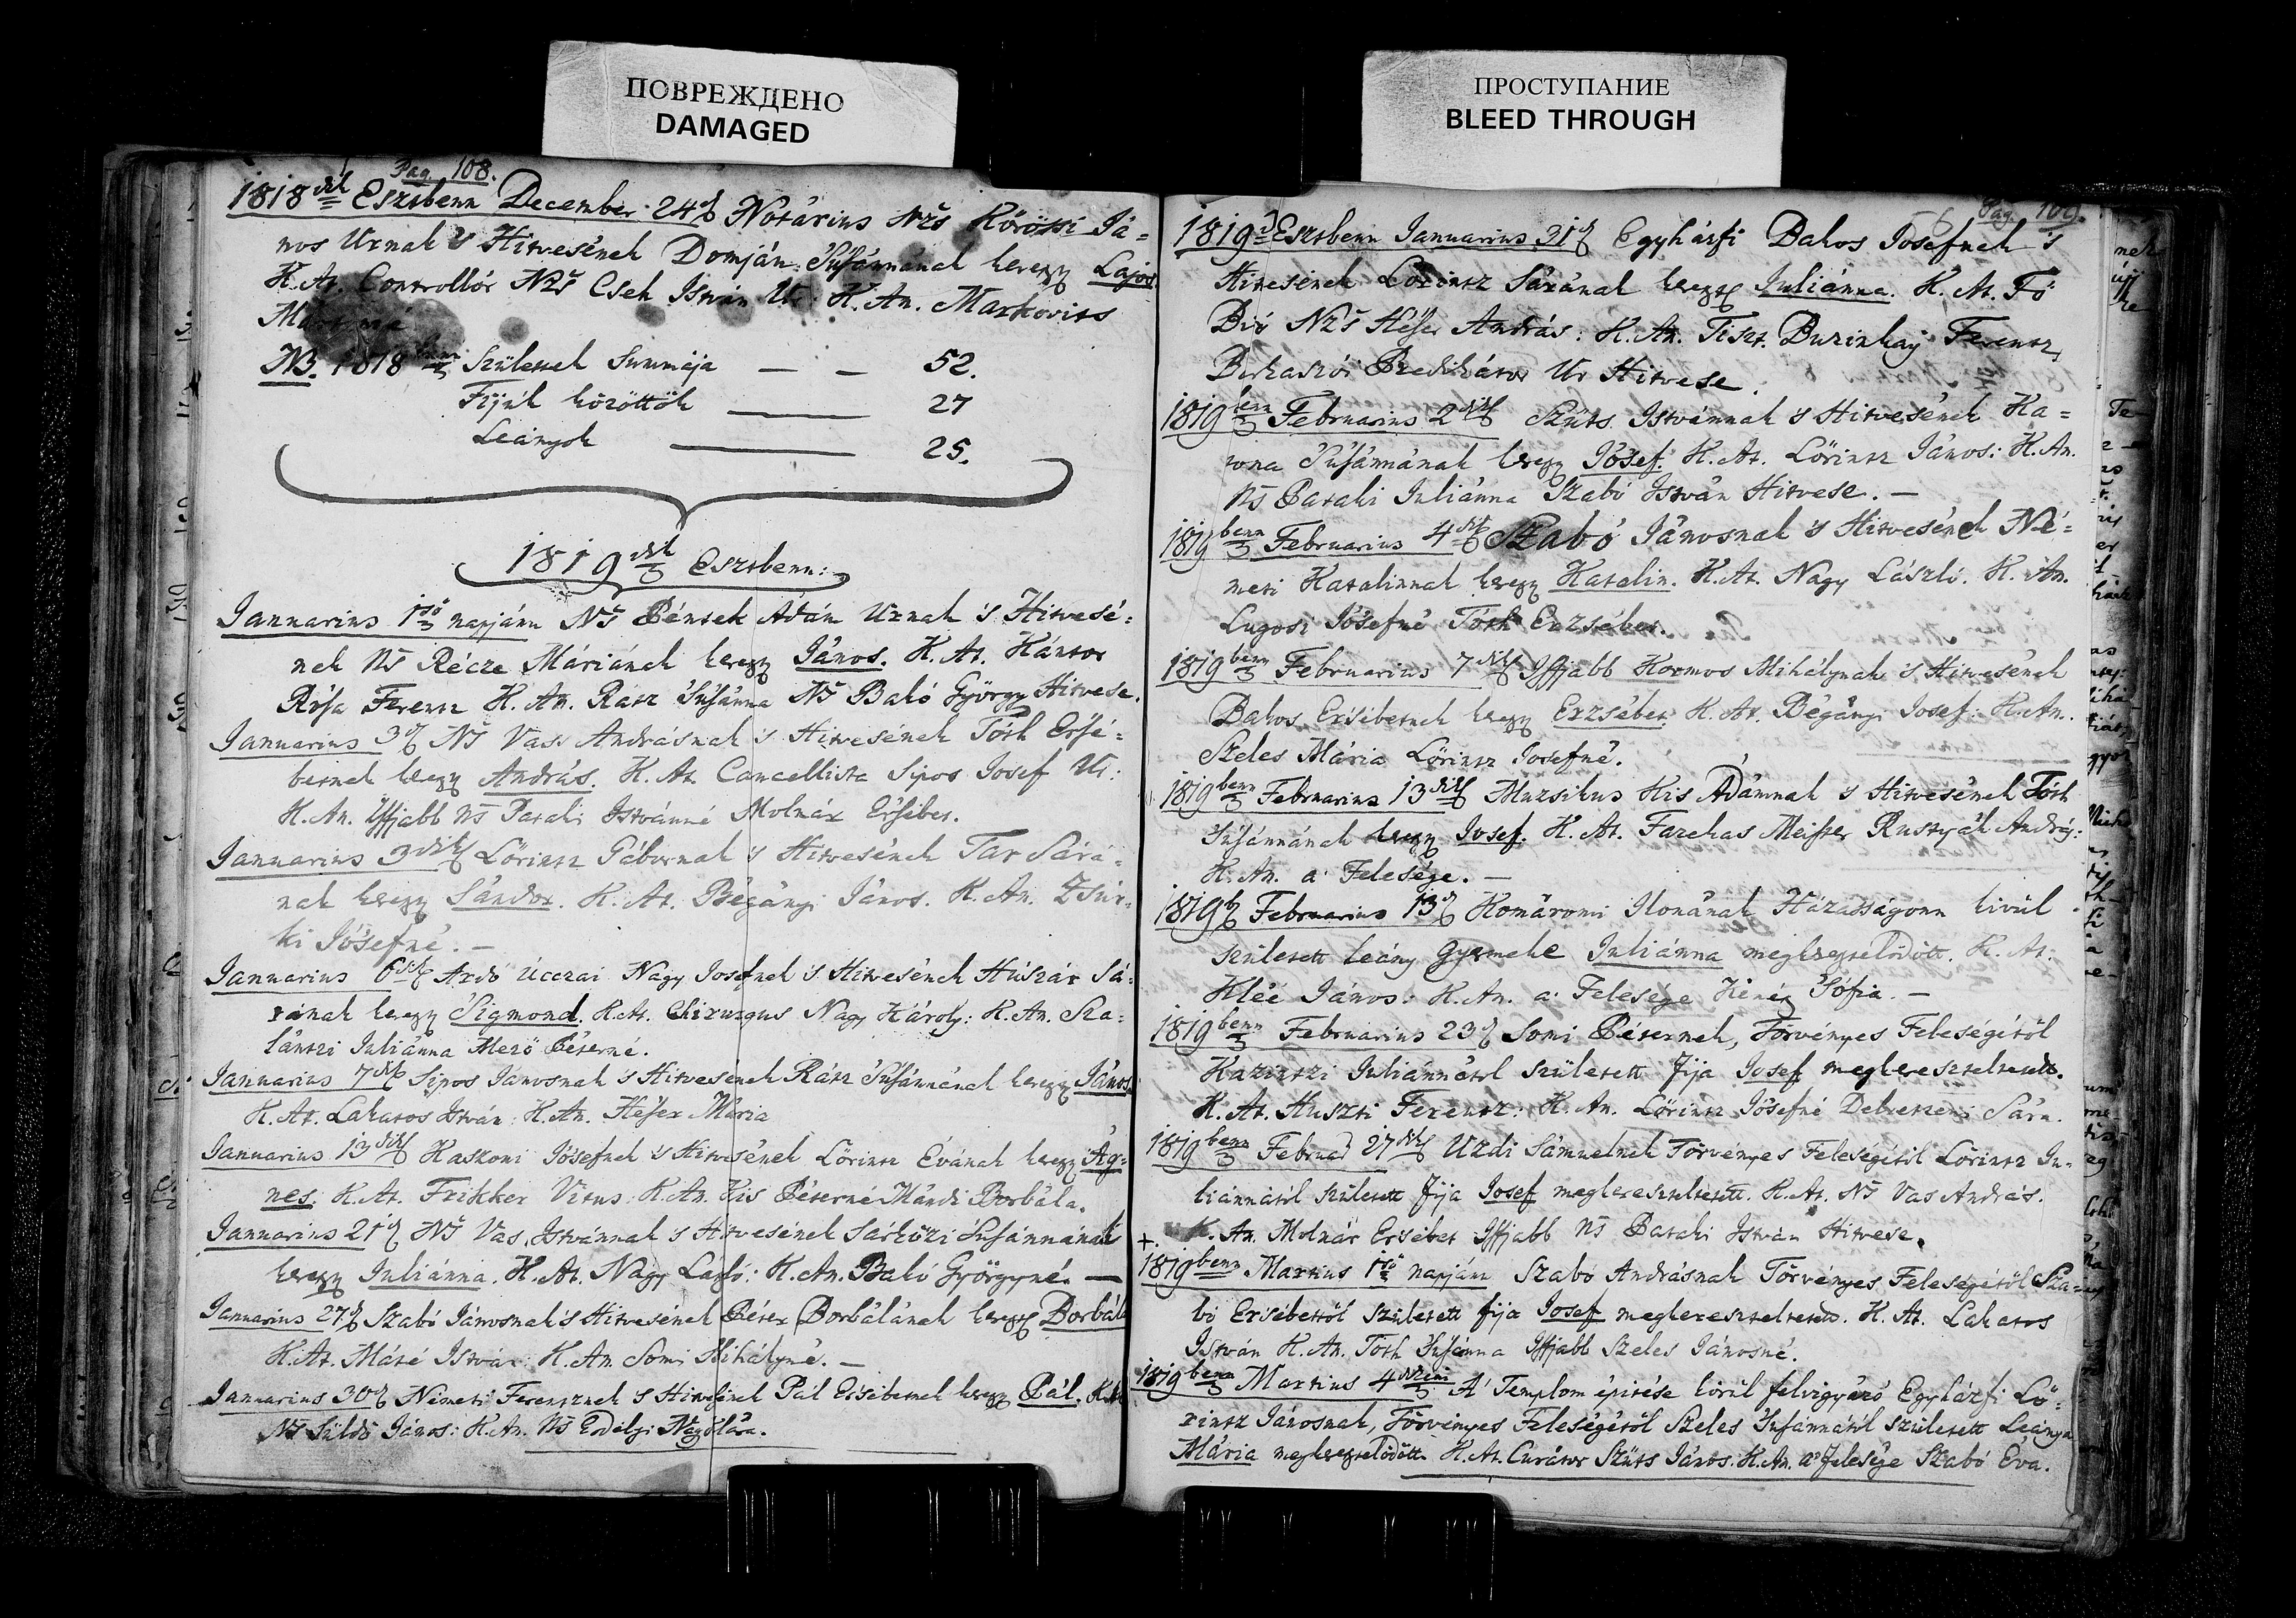 ПОВРЕЖДЕНО
DAMAGED
ПРОСТУПАНИЕ
BLEED THROUGH
Pag. 108.
1818dik Esztbenn December 24d Nótárius Nzs Körössi Já=
nos Urnak 's Hitvesének Domján Susánnának kereszt Lajos
K. At. Controllór Nzs Cseh István Ur: K. An. Markovits
NB. 1818benn Születtek Summája — — 52.
Fijúk közöttök — 27
Leányok — 25.
1819dik Esztbenn:
Januarius 1ső napjánn Ns Péntek Ádám Urnak 's Hitvesé=
nek Ns Récze Máriának kereszt János. K. At. Kántor
Rósa Ferentz K. An. Rátz Susánna Ns Bakó György Hitvese.
Januarius 3d Ns Vass Andrásnak 's Hitvesének Tóth Ersé=
betnek kereszt András. K. At. Cancellista Sipos Josef Ur:
K. An. Iffjabb Ns Pataki Istvánné Molnár Ersébet.
Januarius 3dik Lőrintz Gábornak 's Hitvesének Tar Sárá=
nak kereszt Sándor. K. At. Bégányi János. K. An. Zsúr=
ki Jósefné. —
Januarius 6dik Ardó Úczai Nagy Josefnek 's Hitvesének Húszár Sá=
rának kereszt Sigmond. K. At. Chirurgus Nagy Károly: K. An. Sza=
lántzi Juliánna Mező Péterné.
Januarius 7dik Sipos Janosnak 's Hitvesének Rátz Susánnának kereszt János
K. At. Lakatos István: K. An. Héser Mária
Januarius 13dik Kaszoni Jósefnek 's Hitvesének Lőrintz Évának kereszt Ág=
nes. K. At. Frikker Vitus. K. An. Kis Péterné Mándi Borbála.
Januarius 21d Ns Vas Istvánnak 's Hitvesének Sárközi Susánnának
kereszt Juliánna. K. At. Nagy Lazló: K. An. Bakó Györgyné. —
Januarius 27d Szabó Jánosnak 's Hitvesének Péter Borbálának kereszt Borbála
K. At. Máté István: K. An. Somi Mihályné. —
Januarius 30d Németi Ferentznek 's Hitvesének Pál Ersébetnek kereszt Pál. K. At.
Ns Süldő János: K. An. Ns Erdélyi Nagy Klára.
Pag. 109.
1819d Esztbenn Januarius 31d Egyházfi Bakos Josefnek 's
Hitvesének Lőrintz Sárának kereszt Juliánna. K. At. Fő
Biró Nzs Héser András: K. An. Tiszt. Buzinkay Ferentz,
Prédikátor Ur Hitvese.
1819benn Februarius 2dik Szűts Istvánnak 's Hitvesének Ka=
tona Susánnának kereszt Jósef. K. At. Lőrintz János: K. An.
Ns Pataki Juliánna Szabó István Hitvese. —
1819benn Februarius 4dik Szabó Jánosnak 's Hitvesének Né=
meti Katalinnak kereszt Katalin. K. At. Nagy László. K. An.
Lugosi Jósefné Tóth Erzsébet.
1819benn Februarius 7dik Iffjabb Kormos Mihálynak 's Hitvesének
Bakos Ersébetnek kereszt Erzsébet K. At. Bégányi Josef: K. An.
Szeles Mária Lőrintz Josefné.
1819benn Februarius 13dik Muzsikus Kis Ádámnak 's Hitvesének Tóth
Susánnának kereszt Josef. K. At. Fazekas Meister Rustyák András:
K. An. a Felesége. —
1819b Februarius 13d Komáromi Ilonának Házasságonn kivül
született leány Gyermeke Juliánna megkereszteltetödött. K. At.
Kléé János: K. An. a Felesége Zsófia. —
1819benn Februarius 23d Somi Péternek, Törvényes Feleségétől
Kazintzi Juliánnától született fija Josef megkereszteltetett.
K. At. Huszti Ferentz: K. An. Lőrintz Jósefné Debretzeni Sára.
1819benn Februar 27dik Uzdi Sámuelnek Törvényes Feleségétől Lőrintz Ju=
liánnától született fija Josef megkereszteltetett. K. At. Ns Vas András.
K. An. Molnár Ersébet Iffjabb Ns Pataki István Hitvese.
+.
1819benn Martius 1ső napjánn Szabó Andrásnak Törvényes Feleségétől Sza=
bó Ersébettől született fija Josef megkereszteltetett. K. At. Lakatos
István K. An. Tóth Susánna Iffjabb Szeles Jánosné.
1819benn Martius 4dikeinn A' Templom épitése körűl felvigyázó Egyházfi Lő=
rintz Jánosnak, Törvényes Feleségétől Szeles Susánnától született Leánya
Mária megkereszteltetödött K. At. Curátor Szűts János: K. An. a' felesége Szabó Éva.